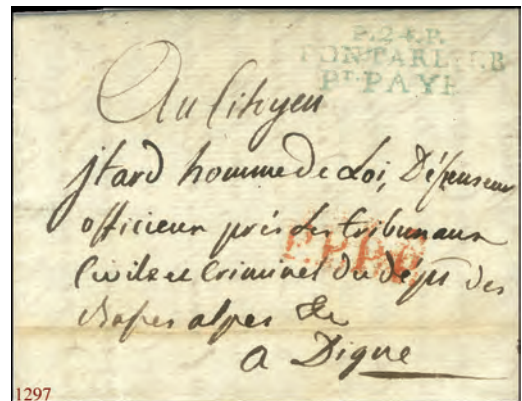 P.24.P.
PONTARLIER
PT-PAYÉ
Au Citoyen
jtard homme de Loi, Défenseur
officieux près des tribunaux
Civils et Criminel du dept des
basses alpes &c
P.P.P.P.
a Digne
1297